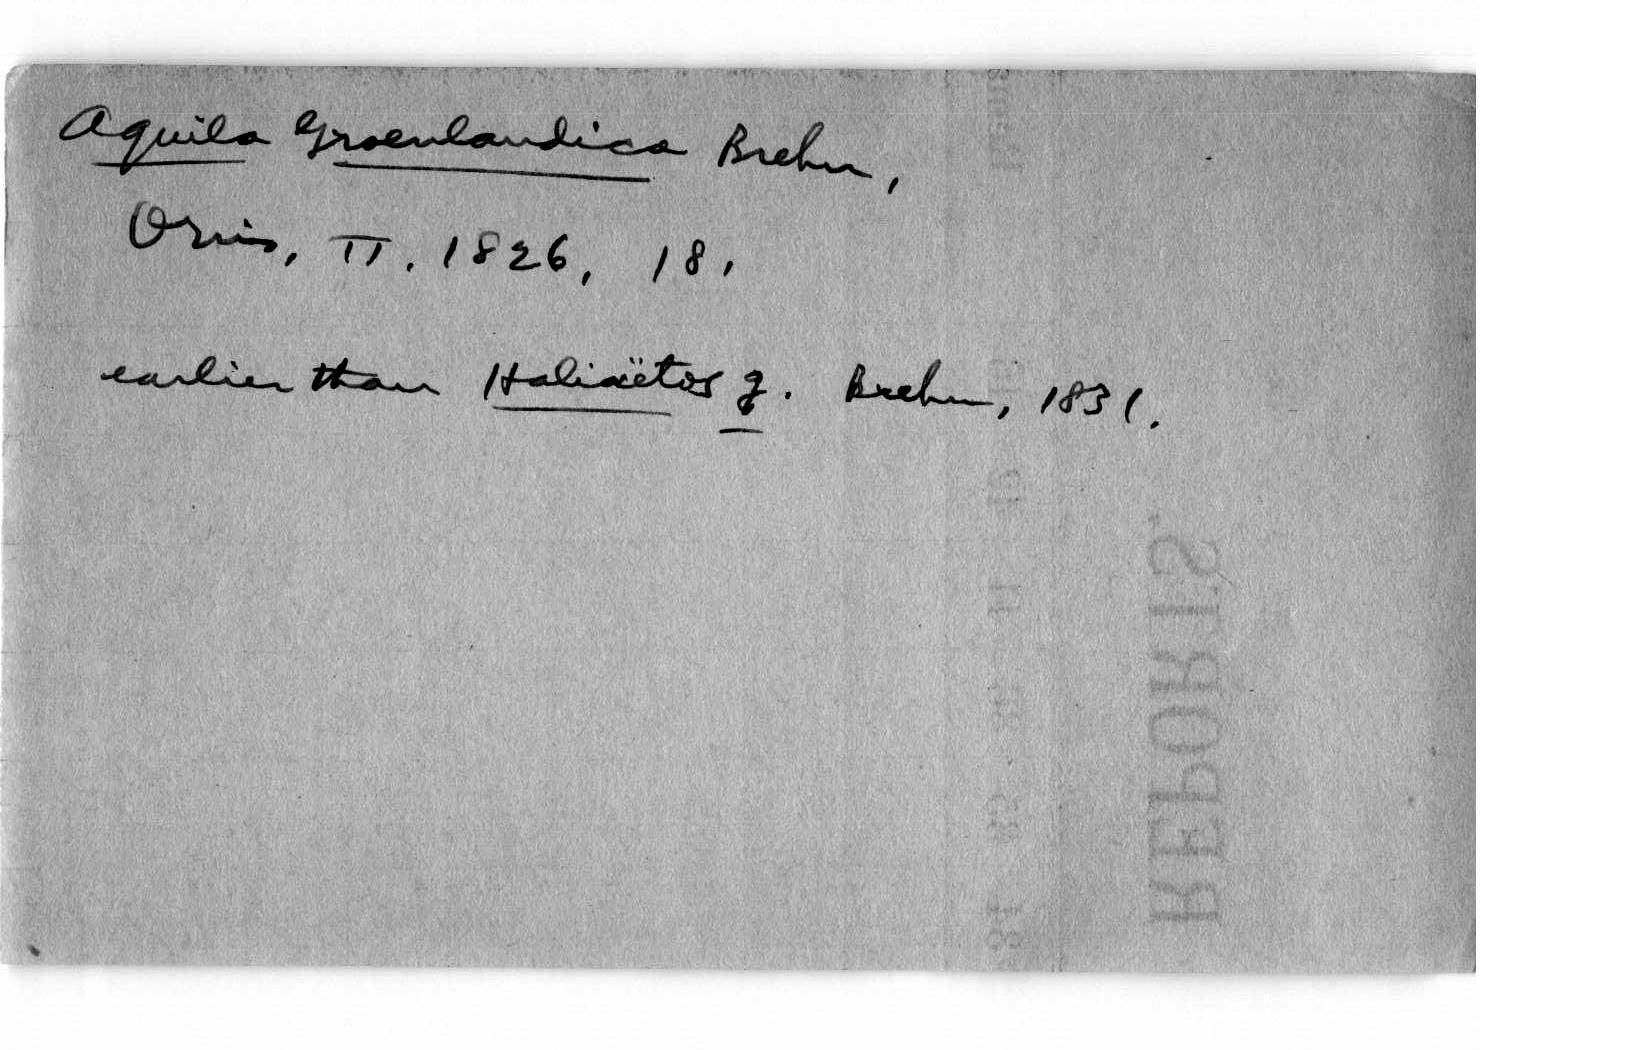 Aquila Groenlandica Brehm,
Ornis, II. 1826, 18.
earlier than Haliaëtos g. Brehm, 1831.
REPORTS.